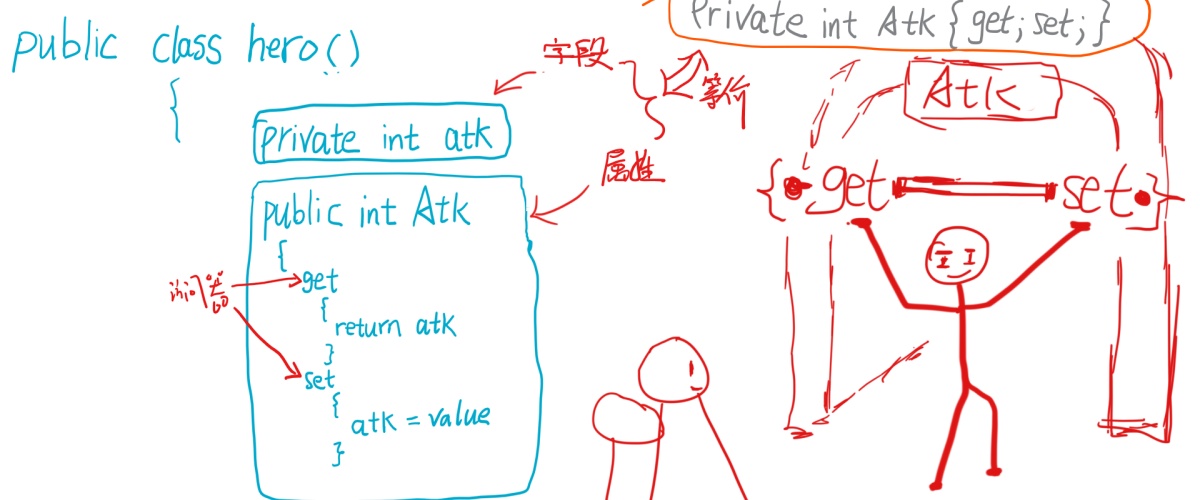 public class hero()
{
private int atk
public int Atk
{
get
{
return atk
}
set
{
atk = value
}
访问器
字段
等价
属性
Private int Atk { get; set; }
Atk
{ get set }